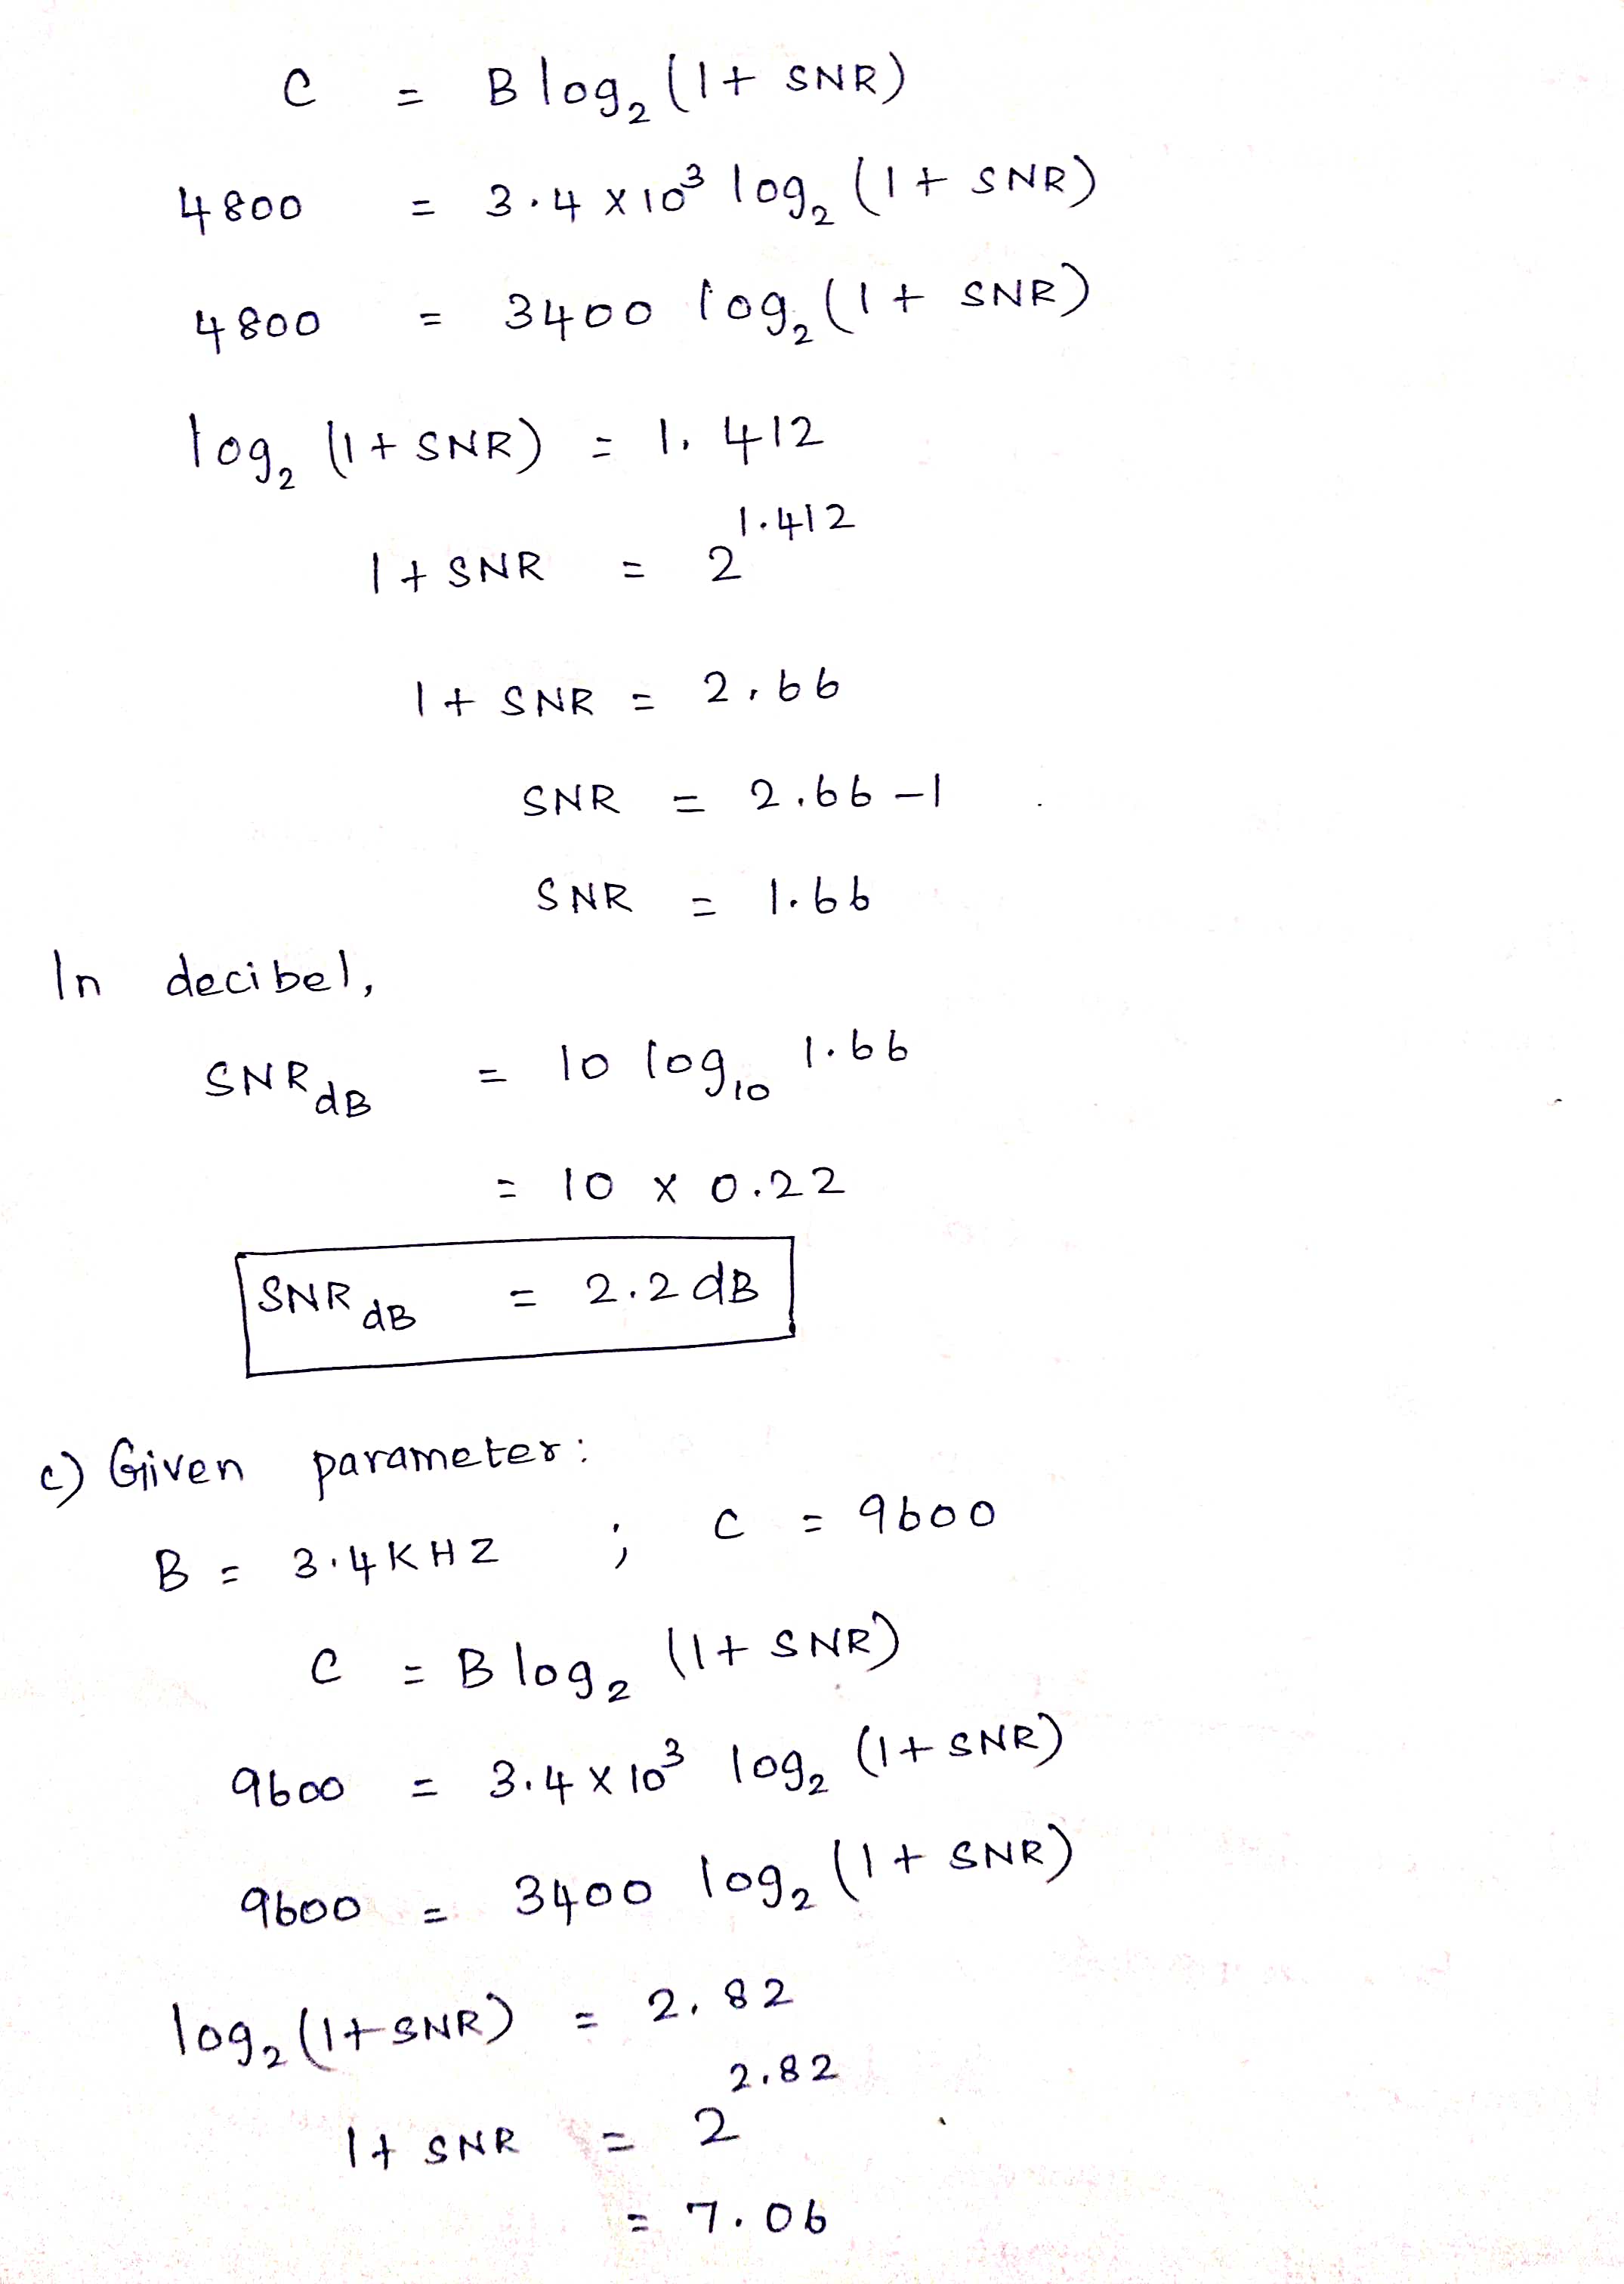 C = B log₂ (1+ SNR)
4800 = 3.4 × 10³ log₂ (1+ SNR)
4800 = 3400 log₂ (1+ SNR)
log₂ (1+ SNR) = 1.412
1+ SNR = 2^1.412
1+ SNR = 2.66
SNR = 2.66 -1
SNR = 1.66
In decibel,
SNR dB = 10 log₁₀ 1.66
= 10 × 0.22
SNR dB = 2.2 dB
c) Given parameter:
B = 3.4 KHZ ; C = 9600
C = B log₂ (1+ SNR)
9600 = 3.4 × 10³ log₂ (1+ SNR)
9600 = 3400 log₂ (1+ SNR)
log₂ (1+ SNR) = 2.82
1+ SNR = 2^2.82
= 7.06